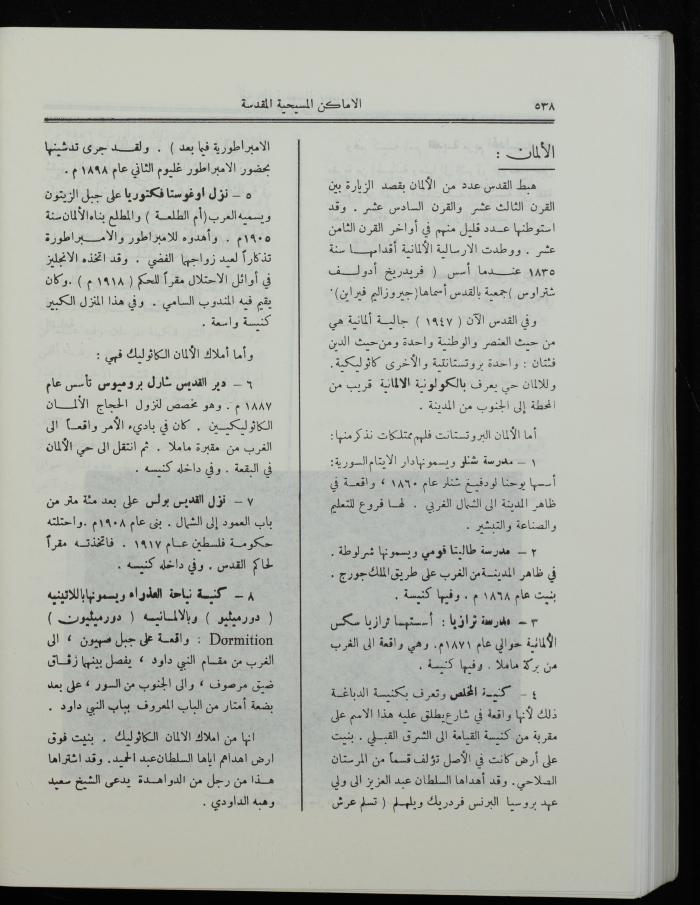 ٥٣٨
الاماكن المسيحية المقدسة
الألمان :
هبط القدس عدد من الألمان بقصد الزيارة بين
القرن الثالث عشر والقرن السادس عشر . وقد
استوطنها عدد قليل منهم في أواخر القرن الثامن
عشر . ووطدت الارسالية الألمانية أقدامها سنة
١٨٣٥ عندما أسس ( فريدريخ أدولف
شتراوس ) جمعية بالقدس أسماها (جيروزاليم فيراين).
وفي القدس الآن ( ١٩٤٧ ) جالية ألمانية هي
من حيث العنصر والوطنية واحدة ومن حيث الدين
فئتان : واحدة بروتستانتية والأخرى كاثوليكية .
وللالمان حي يعرف بالكولونية الالمانية قريب من
المحطة إلى الجنوب من المدينة .
أما الألمان البروتستانت فلهم ممتلكات نذكر منها :
١ – مدرسة شنلر ويسمونها دار الايتام السورية :
أسسها يوحنا لودفيغ شنلر عام ١٨٦٠ ، واقعة في
ظاهر المدينة الى الشمال الغربي . لها فروع للتعليم
والصناعة والتبشير .
٢ – مدرسة طاليتا قومي ويسمونها شرلوطة .
في ظاهر المدينة من الغرب على طريق الملك جورج .
بنيت عام ١٨٦٨ م . وفيها كنيسة .
٣ – مدرسة ترازيا : أسستها ترازيا سكس
الألمانية حوالي عام ١٨٧١م. وهي واقعة الى الغرب
من بركة ماملا . وفيها كنيسة .
٤ – كنيسة المخلص وتعرف بكنيسة الدباغة
ذلك لأنها واقعة في شارع يطلق عليه هذا الاسم على
مقربة من كنيسة القيامة الى الشرق القبلي . بنيت
على أرض كانت في الأصل تؤلف قسماً من المرستان
الصلاحي . وقد أهداها السلطان عبد العزيز الى ولي
عهد بروسيا البرنس فردريك ويلهلم ( تسلم عرش
الامبراطورية فيما بعد ) . ولقد جرى تدشينها
بحضور الامبراطور غليوم الثاني عام ١٨٩٨ م .
٥ – نزل اوغوستا فكتوريا على جبل الزيتون
ويسميه العرب (أم الطلعة ) والمطلع بناه الألمان سنة
١٩٠٥م . وأهدوه للامبراطور والامبراطورة
تذكاراً لعيد زواجهما الفضي . وقد اتخذه الانجليز
في أوائل الاحتلال مقراً للحكم ( ١٩١٨ م ) .وكان
يقيم فيه المندوب السامي . وفي هذا المنزل الكبير
كنيسة واسعة .
وأما أملاك الألمان الكاثوليك فهي :
٦ – دير القديس شارل بروميوس تأسس عام
١٨٨٧ م . وهو مخصص لنزول الحجاج الألمان
الكاثوليكيين . كان في بادىء الأمر واقعاً الى
الغرب من مقبرة ماملا . ثم انتقل الى حي الألمان
في البقعة . وفي داخله كنيسه .
٧ – نزل القديس بولس على بعد مئة متر من
باب العمود إلى الشمال . بنى عام ١٩٠٨م .واحتلته
حكومة فلسطين عام ١٩١٧ . فاتخذته مقراً
لحاكم القدس . وفي داخله كنيسه .
٨ – كنيسة نياحة العذراء ويسمونها باللاتينيه
( دورميثيو ) وبالالمانيه ( دورميثيون )
Dormition : واقعة على جبل صهيون ، الى
الغرب من مقام النبي داود ، يفصل بينهما زقاق
ضيق مرصوف ، والى الجنوب من السور ، على بعد
بضعة أمتار من الباب المعروف بباب النبي داود .
انها من املاك الالمان الكاثوليك . بنيت فوق
ارض اهداهم اياها السلطان عبد الحميد. وقد اشتراها
هذا من رجل من الدواهدة يدعى الشيخ سعيد
وهبه الداودي .